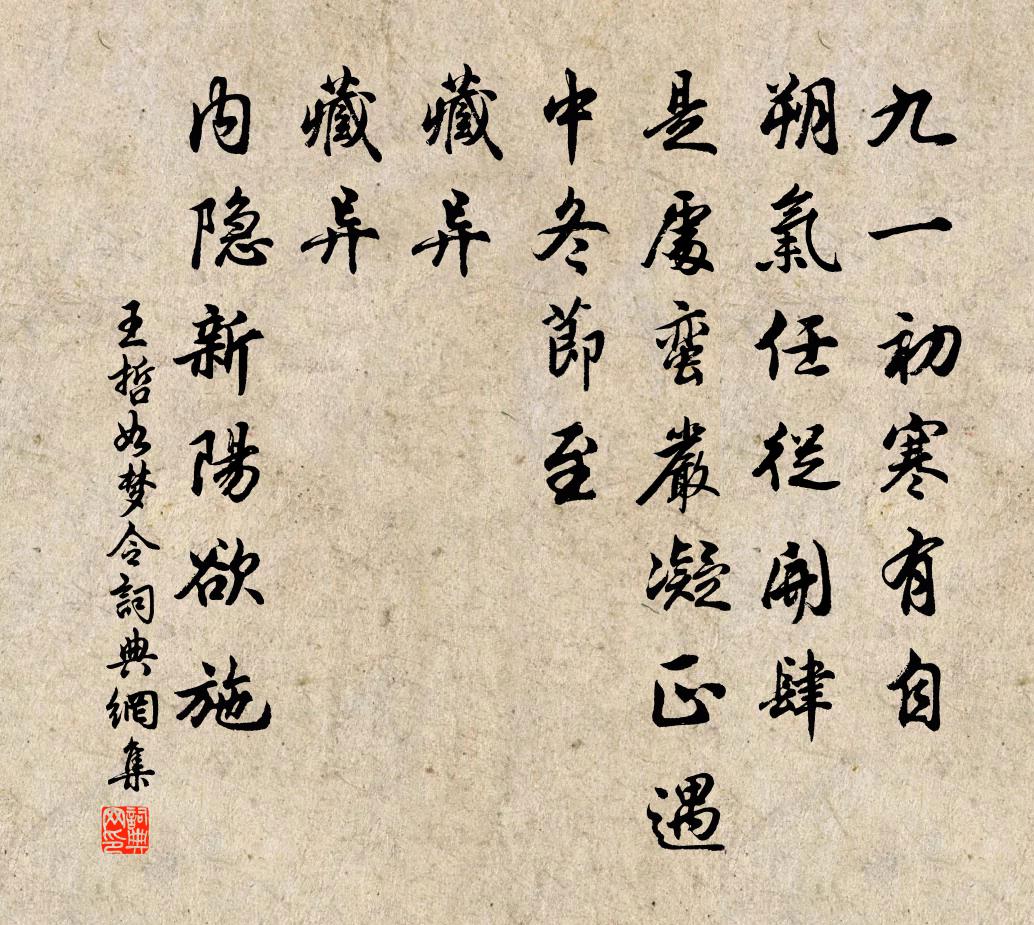 九一初寒有自
朔氣任從開肆
是處蛮嚴凝正遇
中冬節至
藏异
藏异
内隐新陽欲施
王哲如梦令詞典網集
詞典网印